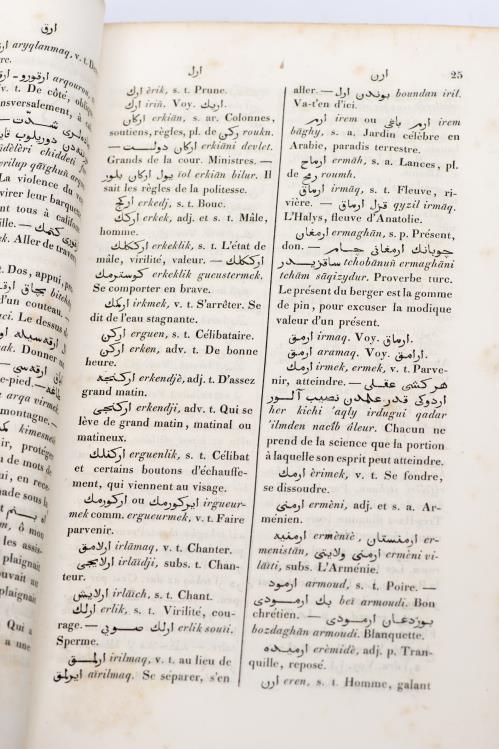 ارق
aryqlanmaq, v. t. De
arqouroû,
v. t. De côté, obliq
ansversalement, à
شدت
chiddeti
La violence du v
virer leur barque
ent tous à califour
Aller de travers
t. Dos, appui, p
d'un couteau. —
Le dessus d
Donner
e-pied. —
arqa virmek
montagne. —
kimesneïe
ir, protéger
u de mots de
i, en rece-
ade sous la
ô mou
les assis-
plaignait
ouvait au
plaignait
Qui a
a une
ارل
ارك èrik, s. t. Prune.
ارك iriñ. Voy. اريك.
اركان erkiân, s. ar. Colonnes,
soutiens, règles, pl. de ركن roukn.
— اركان دولت erkiâni devlet.
Grands de la cour. Ministres. —
يول اركان بلور ïol erkiân bilur. Il
sait les règles de la politesse.
اركج erkedj, s. t. Bouc.
اركك erkek, adj. et s. t. Mâle,
homme.
ارككلك erkeklik, s. t. L'état de
mâle, virilité, valeur. — ارككلك
كوسترمك erkeklik gueustermek.
Se comporter en brave.
ارمك irkmek, v. t. S'arrêter. Se
dit de l'eau stagnante.
اركن erguen, s. t. Célibataire.
اركن erken, adv. t. De bonne
heure.
اركنجه erkendjè, adj. t. D'assez
grand matin.
اركنجى erkendji, adv. t. Qui se
lève de grand matin, matinal ou
matineux.
اركنلك erguenlik, s. t. Célibat
et certains boutons d'échauffe-
ment, qui viennent au visage.
اركورمك ou ايركورمك irgueur-
mek comm. ergueurmek, v. t. Faire
parvenir.
ارلامق irlâmaq, v. t. Chanter.
ارلايجى irlâïdji, subs. t. Chan-
teur.
ارلايش irlâich, s. t. Chant.
ارلك erlik, s. t. Virilité, cou-
rage. — ارلك صويى erlik souïi.
Sperme.
ارلمق irilmaq, v. t. au lieu de
ايرلمق aïrilmaq. Se séparer, s'en
ارن
25
aller. — بوندن ارل boundan iril.
Va-t'en d'ici.
ارم irem ou ارم باغى irem
bâghy, s. a. Jardin célèbre en
Arabie, paradis terrestre.
ارماح ermâh, s. a. Lances, pl.
de رمح roumh.
ارماق irmâq, s. t. Fleuve, ri-
vière. — قزل ارماق qyzil irmâq.
L'Halys, fleuve d'Anatolie.
ارمغان ermaghân, s. p. Présent,
don. — چوبانك ارمغانى چام
ساقزيدر tchobânuñ ermaghâni
tchâm sâqizydur. Proverbe turc.
Le présent du berger est la gomme
de pin, pour excuser la modique
valeur d'un présent.
ارمق irmaq. Voy. ارماق.
ارمق aramaq. Voy. ارامق.
ارمك irmek, ermek, v. t. Parve-
nir, atteindre. — هر كشى عقلى
اردوكى قدر علمدن نصيب آلور
her kichi 'aqly irdugui qadar
'ilmden nacîb âleur. Chacun ne
prend de la science que la portion
à laquelle son esprit peut atteindre.
ارمك èrimek, v. t. Se fondre,
se dissoudre.
ارمنى ermèni, adj. et s. a. Ar-
ménien.
ارمنيه ermènïè, ارمنستان er-
menistân, ارمنى ولايتى erméni vi-
lâïti, subs. L'Arménie.
ارمود armoud, s. t. Poire. —
بك ارمودى beï armoudi. Bon
chrétien. — بوزدغان ارمودى
bozdaghân armoudi. Blanquette.
ارميده erèmidè, adj. p. Tran-
quille, reposé.
ارن eren, s. t. Homme, galant